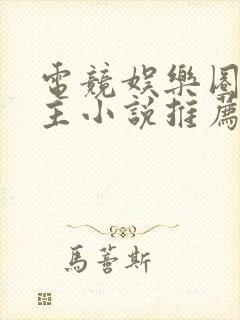 電競娛樂圈
主小說推薦
馬薈斯